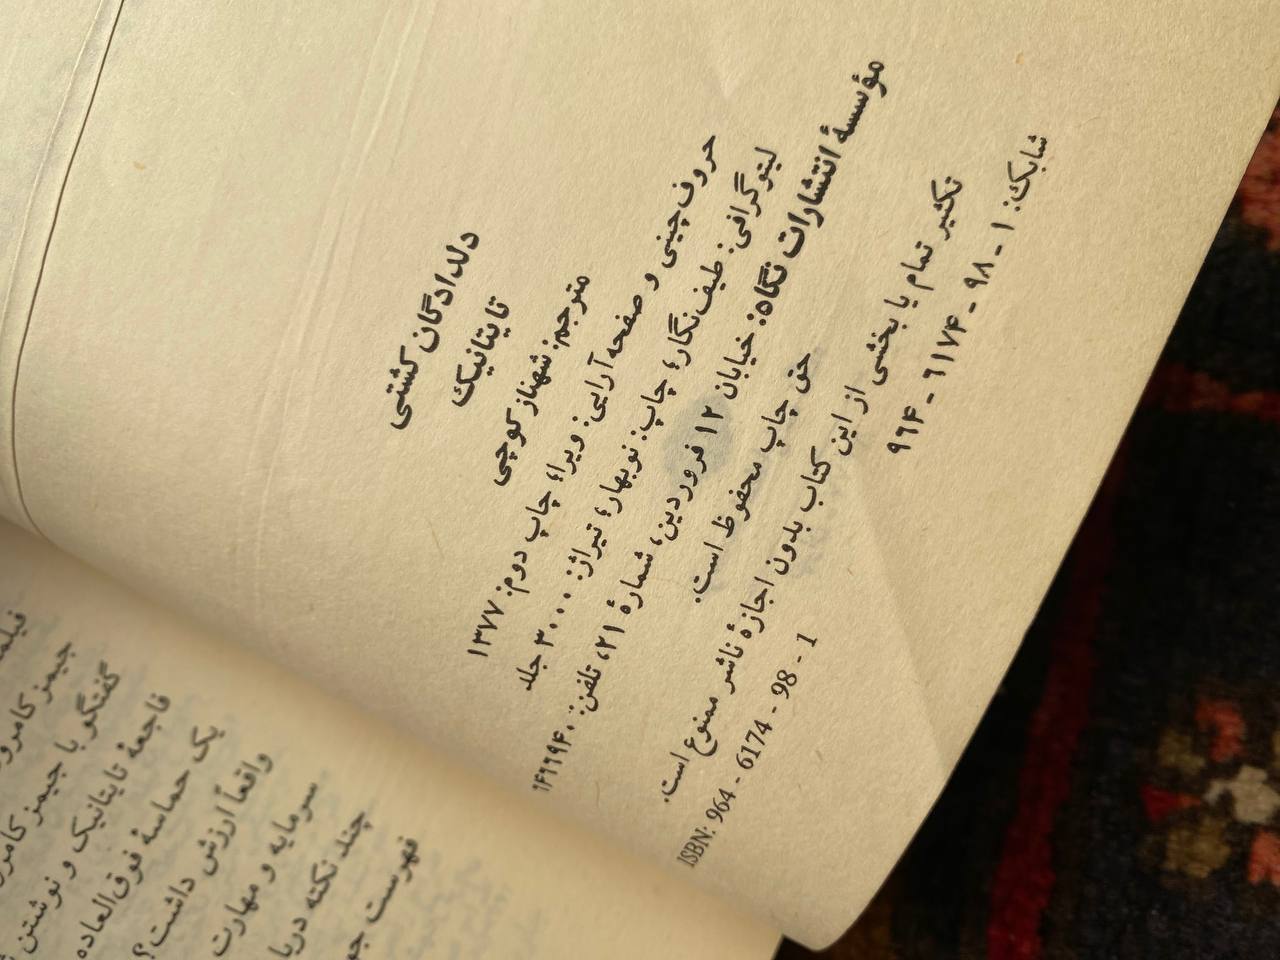 دلدادگان کشتی
تایتانیک
مترجم: شهناز کوچی
حروف‌چینی و صفحه‌آرایی: ویرا؛ چاپ دوم: ۱۳۷۷
لیتوگرافی: طیف‌نگار؛ چاپ: نوبهار؛ تیراژ: ۳۰۰۰ جلد
مؤسسهٔ انتشارات نگاه: خیابان ۱۲ فروردین، شمارهٔ ۲۱، تلفن: ۶۴۶۶۹۴۰
حق چاپ محفوظ است.
تکثیر تمام یا بخشی از این کتاب بدون اجازهٔ ناشر ممنوع است.
شابک: ۱ - ۹۸ - ۶۱۷۴ - ۹۶۴
ISBN: 964 - 6174 - 98 - 1
جیمز کامرون
گفتگو با جیمز کامرون
فاجعهٔ تایتانیک و نوشتن
یک حماسهٔ فوق‌العاده
واقعاً ارزش داشت؟
سرمایه و مهارت
چند نکته دربا
فهرست جو